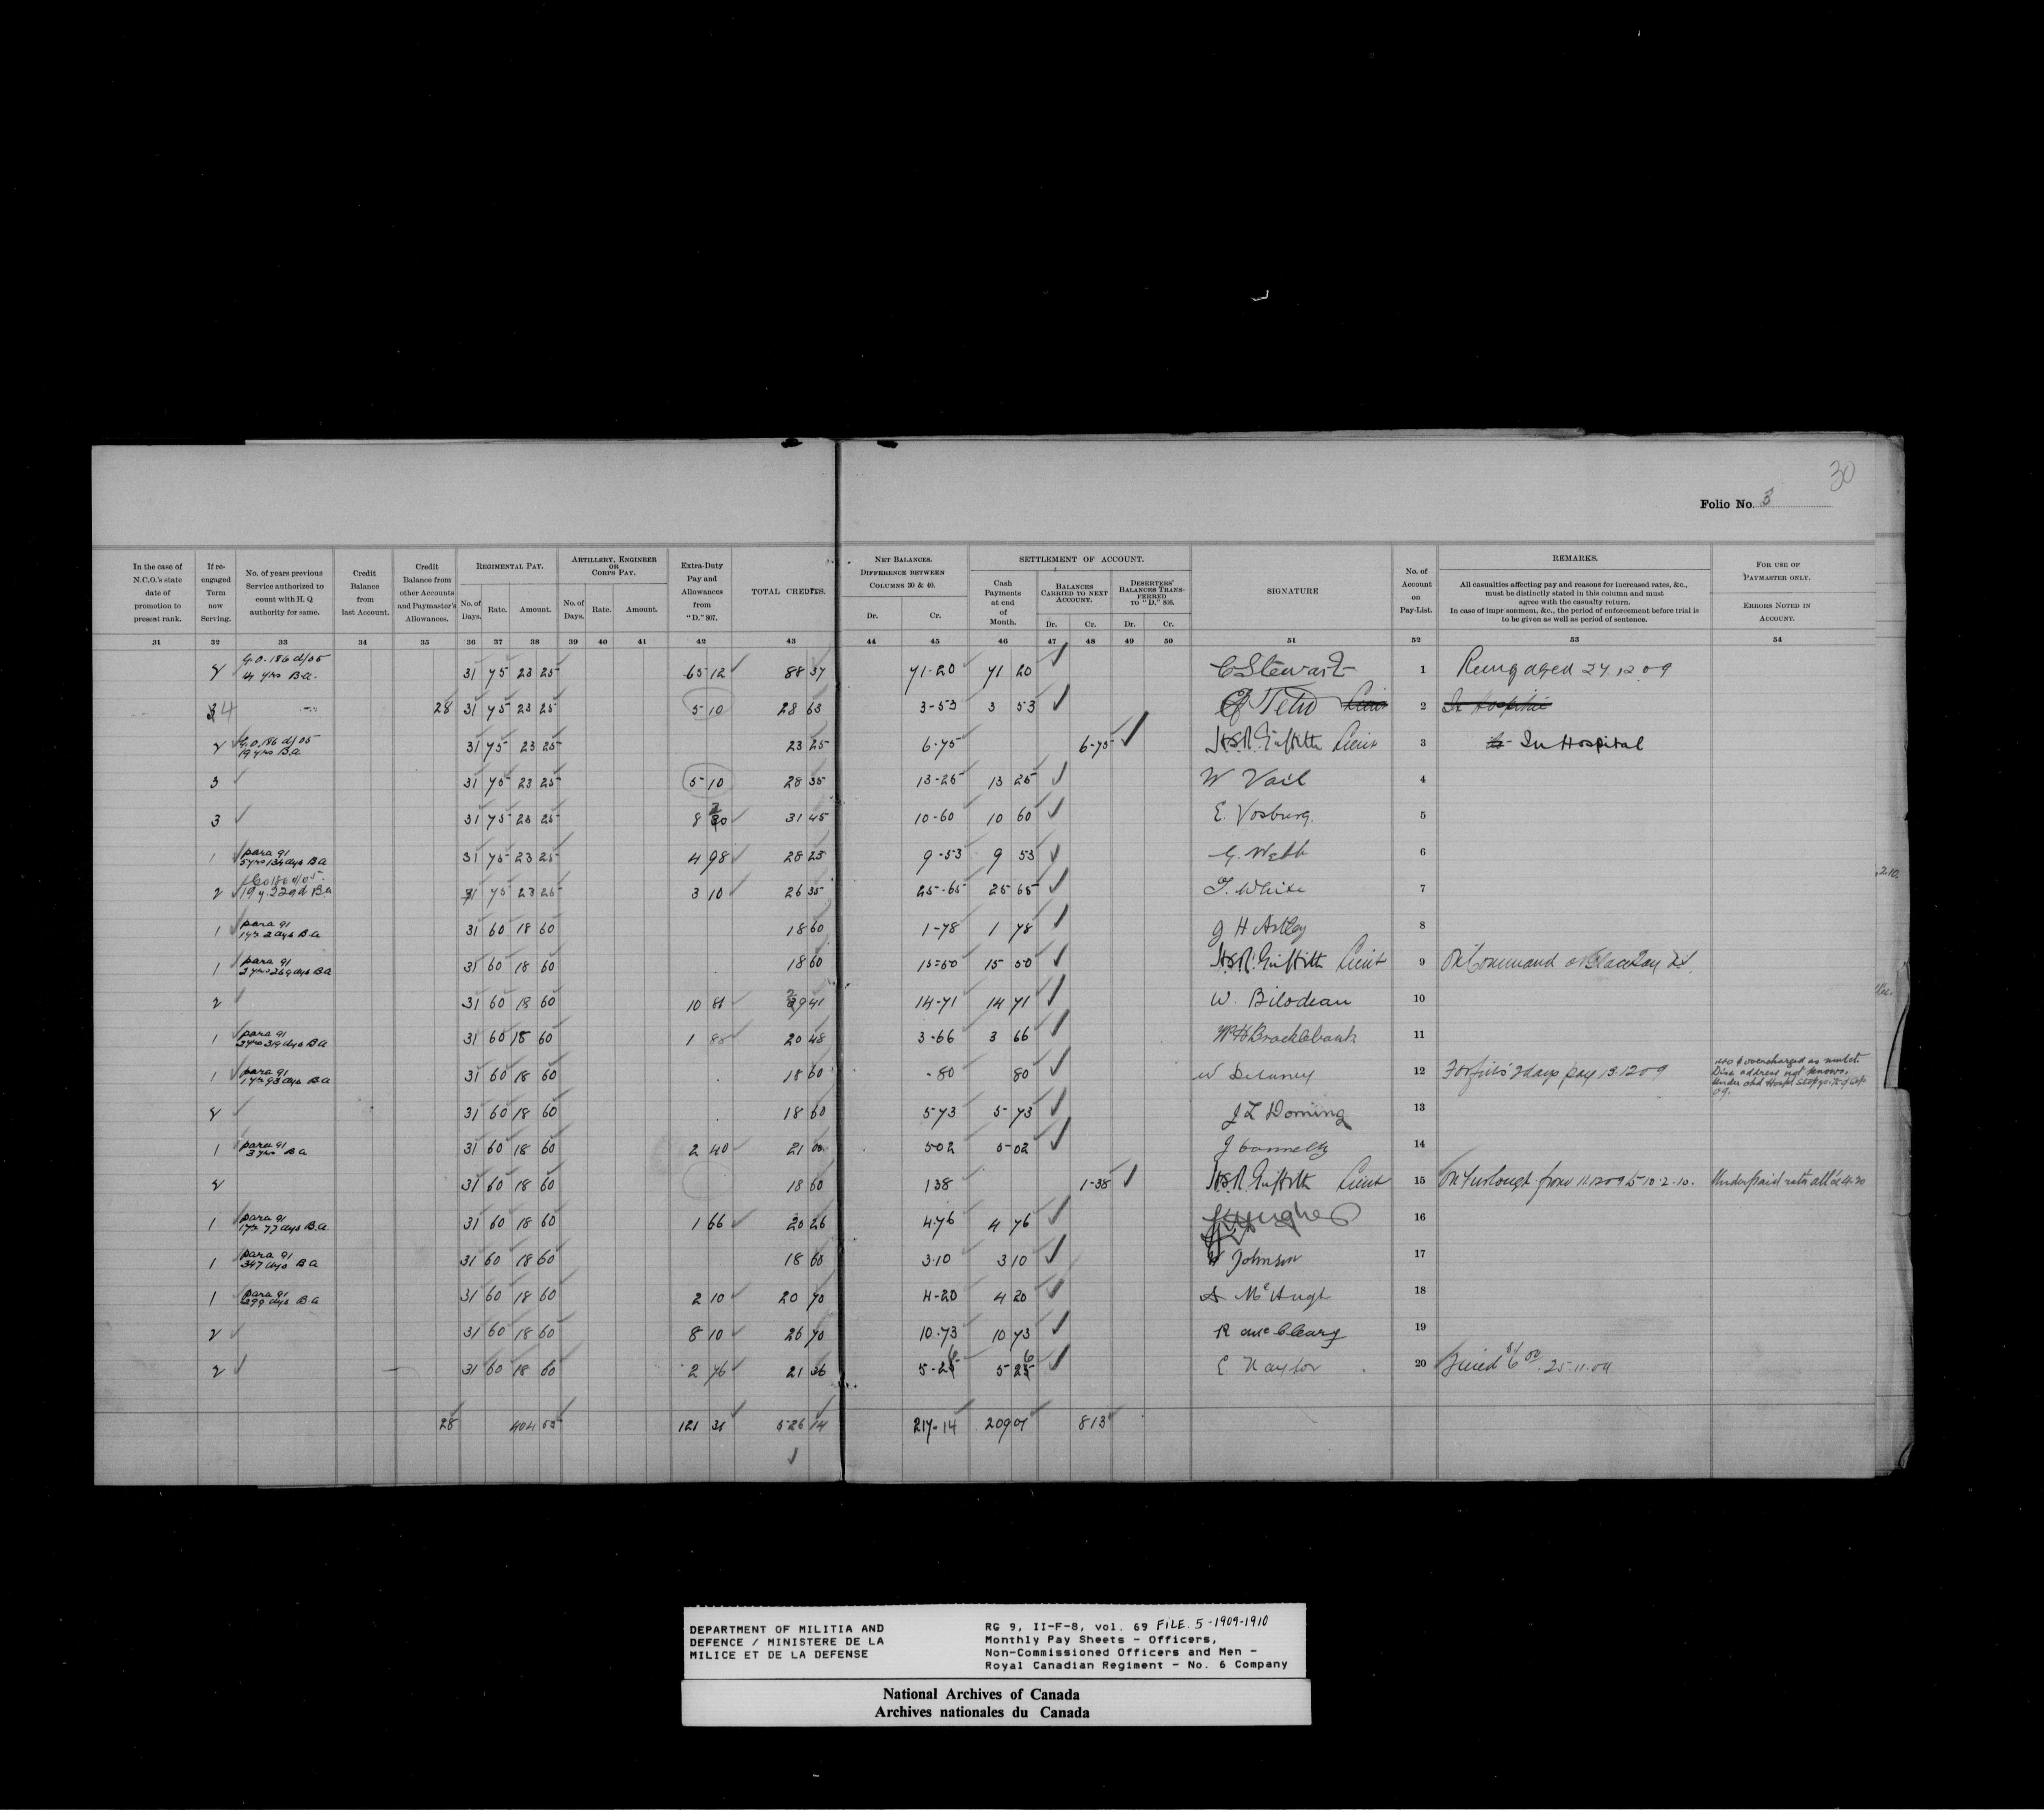 30
Folio No. 3
In the case of N.C.O.'s state date of promotion to present rank.
If re-engaged Term now Serving.
No. of years previous Service authorized to count with H. Q authority for same.
Credit Balance from last Account.
Credit Balance from other Accounts and Paymaster's Allowances.
REGIMENTAL PAY.
No. of Days. Rate. Amount.
ARTILLERY, ENGINEER OR CORPS PAY.
No. of Days. Rate. Amount.
Extra-Duty Pay and Allowances from "D." 807.
TOTAL CREDITS.
NET BALANCES. DIFFERENCE BETWEEN COLUMNS 30 & 40.
Dr. Cr.
SETTLEMENT OF ACCOUNT.
Cash Payments at end of Month.
BALANCES CARRIED TO NEXT ACCOUNT.
Dr. Cr.
DESERTERS' BALANCES TRANSFERRED TO "D." 806.
Dr. Cr.
SIGNATURE
No. of Account on Pay-List.
REMARKS.
All casualties affecting pay and reasons for increased rates, &c., must be distinctly stated in this column and must agree with the casualty return.
In case of impr sonment, &c., the period of enforcement before trial is to be given as well as period of sentence.
FOR USE OF PAYMASTER ONLY.
ERRORS NOTED IN ACCOUNT.
31 32 33 34 35 36 37 38 39 40 41 42 43 44 45 46 47 48 49 50 51 52 53 54
2 G.O. 186 d/05 14 yrs B.a. 31 75 23 25 65 12 88 37 71-20 71 20 C Stewart 1 Reengaged 27.12.09
4 28 31 75 23 25 5 10 28 63 3-53 3 53 2 In Hospital
2 G.O. 186 d/05 19 yrs B.a 31 75 23 25 23 25 6-75 6-75 Griffith Lieut 3 In Hospital
3 31 75 23 25 5 10 28 35 13-25 13 25 W Vail 4
3 31 75 23 25 8 20 31 45 10-60 10 60 E. Vosburg. 5
1 para 91 5 yrs 134 dys B a 31 75 23 25 4 98 28 23 9-53 9 53 G. Webb 6
2 G.O 186 d/05. 19 y. 229 d B.a 31 75 23 25 3 10 26 35 25-65 25 65 T. White 7
1 para 91 1 yr 2 dys B.a 31 60 18 60 18 60 1-78 1 78 J H Astley 8
1 para 91 2 yrs 269 dys B a 31 60 18 60 18 60 15-50 15 50 Griffith Lieut 9 On Command
2 31 60 18 60 10 81 29 41 14-71 14 71 W. Bilodeau 10
1 para 91 3 yrs 319 dys B a 31 60 18 60 1 88 20 48 3-66 3 66 W H Brocklebank 11
1 para 91 1 yr 93 dys B a 31 60 18 60 18 60 -80 80 W Delaney 12 Forfeits 2 days pay 13.12 09
2 31 60 18 60 18 60 5-73 5-73 J L Doming 13
1 para 91 3 yrs B a 31 60 18 60 2 40 21 00 5 02 5-02 J Connelly 14
2 31 60 18 60 18 60 1 38 1-38 Griffith Lieut 15 On Furlough from 11.12 09 to 10.2.10. Underpaid
1 para 91 1 yr 77 dys B.a. 31 60 18 60 1 66 20 26 4.76 4 76 Hughes 16
1 para 91 347 dys B a 31 60 18 60 18 60 3.10 3 10 W Johnson 17
1 para 91 299 dys B.a 31 60 18 60 2 10 20 70 4-20 4 20 McHugh 18
2 31 60 18 60 8 10 26 70 10.73 10 73 R McCleary 19
2 31 60 18 60 2 76 21 36 5-26 5 26 E Naylor 20 Fined $6.00. 25.11.09
28 404 55 121 31 526 14 217-14 209 01 8 13
DEPARTMENT OF MILITIA AND
DEFENCE / MINISTERE DE LA
MILICE ET DE LA DEFENSE
RG 9, II-F-8, vol. 69 FILE. 5-1909-1910
Monthly Pay Sheets - Officers,
Non-Commissioned Officers and Men -
Royal Canadian Regiment - No. 6 Company
National Archives of Canada
Archives nationales du Canada